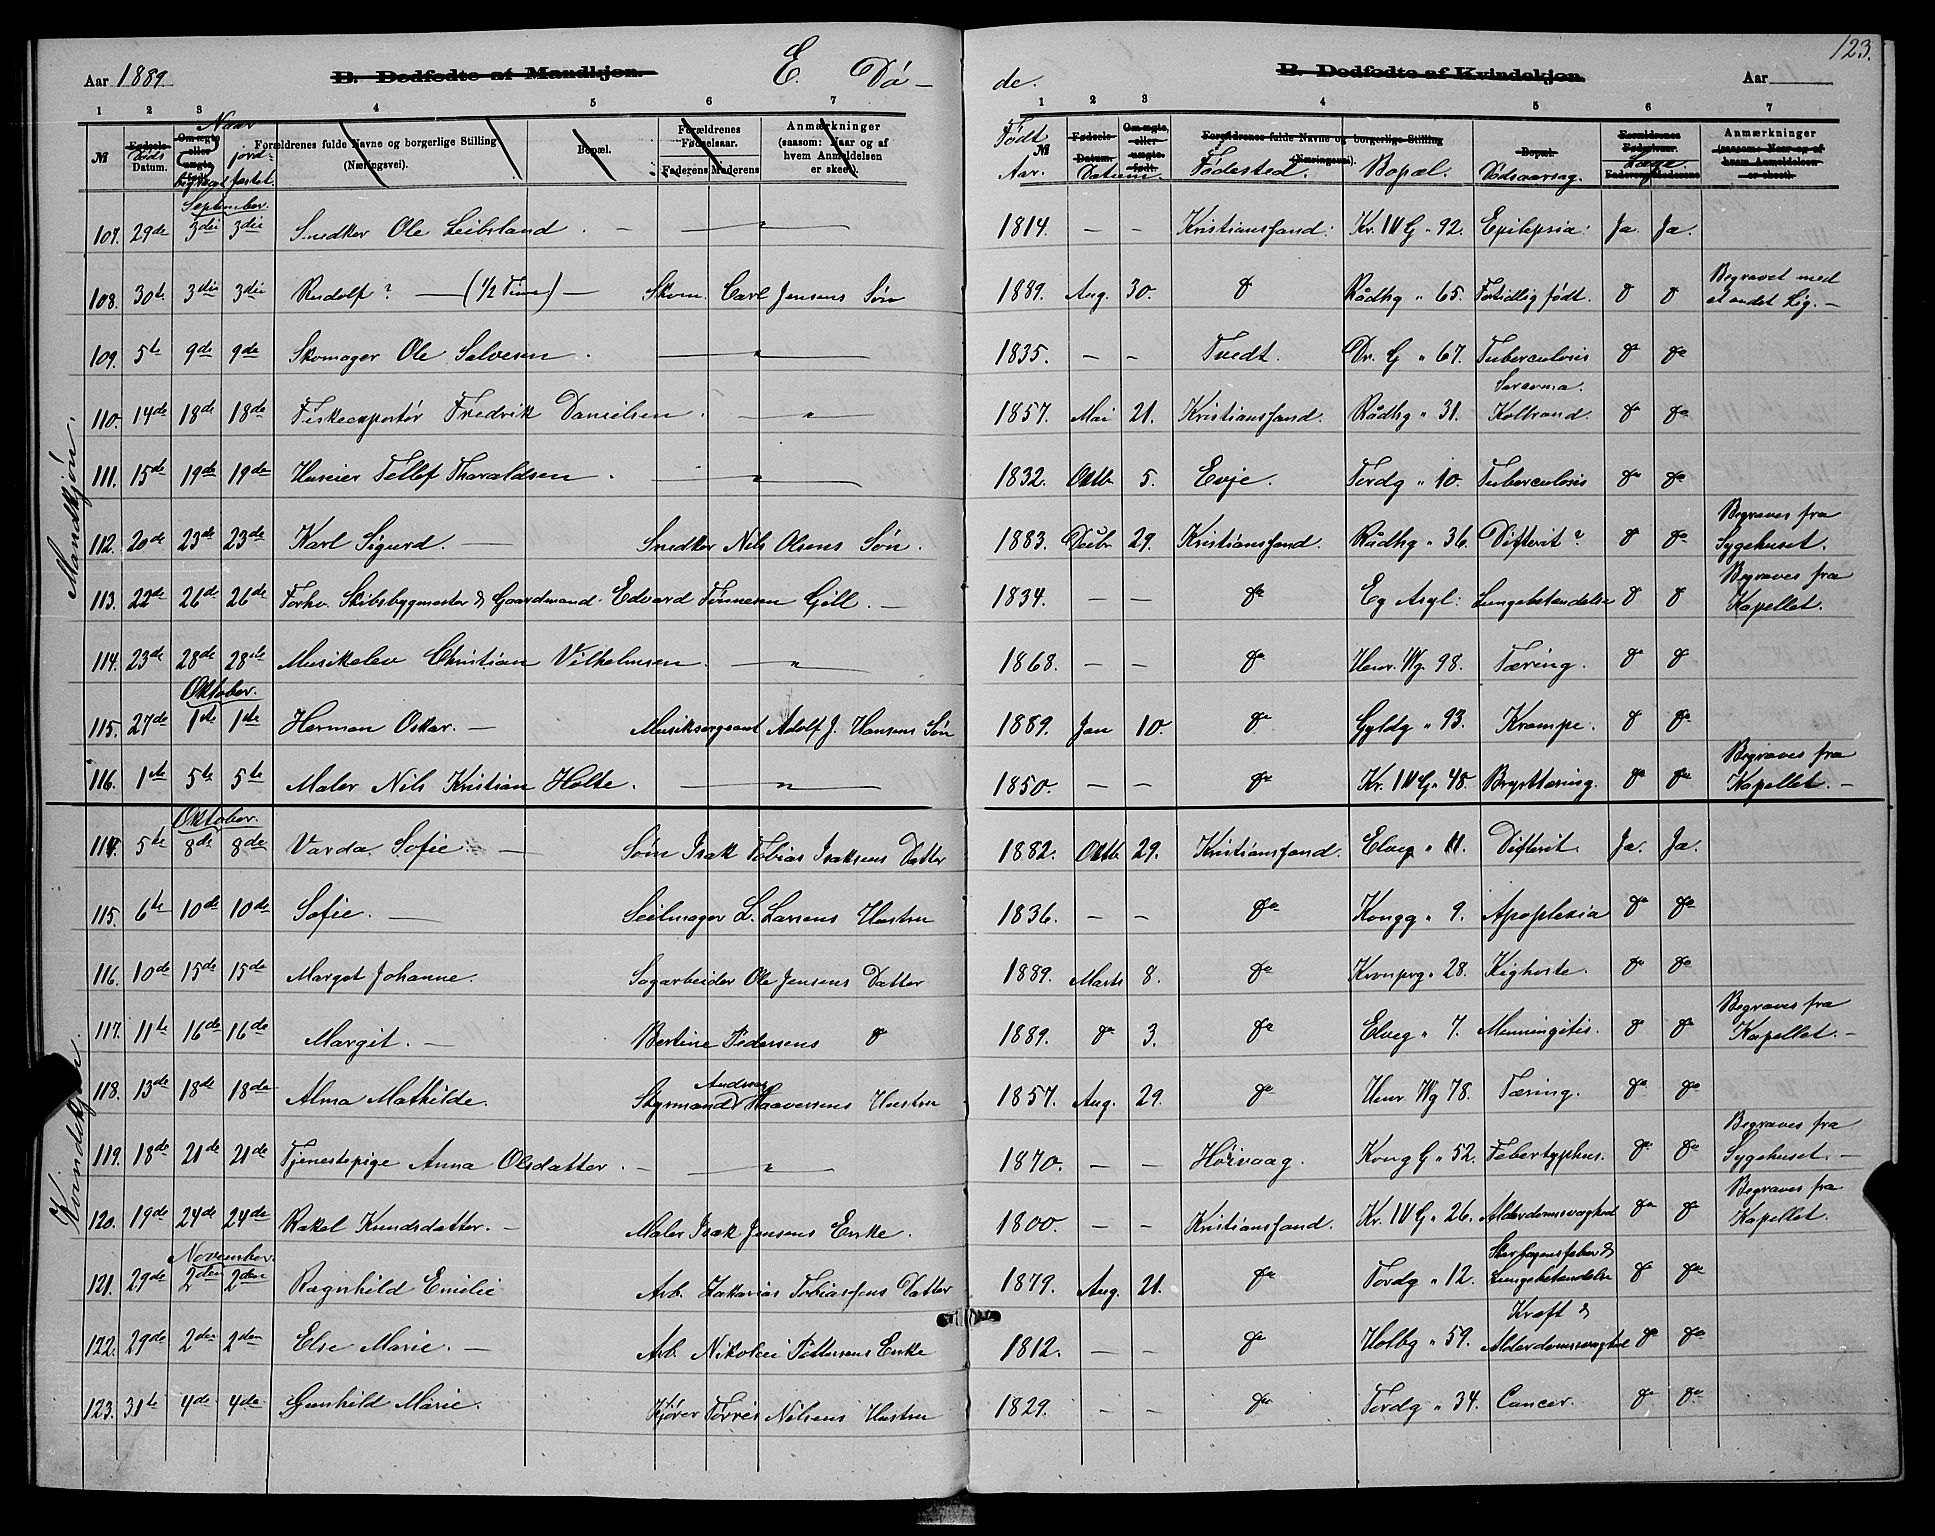 123.
Aar 1889 B. Dødfødte af Mandkjøn. E. Dø-
de. B. Dødfødte af Kvindekjøn. Aar
1 2 3 4 5 6 7
1 2 3 4 5 6 7
№ Fødsels- Døds Datum. Naar Om ægte eller uægte født. begravet jordfæstet. Forældrenes fulde Navne og borgerlige Stilling (Næringsvei). Bopæl. Forældrenes Fødselsaar. Faderens Moderens Anmærkninger (saasom: Naar og af hvem Anmeldelsen er skeet).
Født № Aar. Fødsels- Datum. Om ægte, eller uægte født. Datum. Forældrenes fulde Navne og borgerlige Stilling (Næringsvei). Fødested. Bopæl. Bopæl. Dødsaarsag. Forældrenes Fødselsaar. Læge. Faderens Moderens Anmærkninger (saasom: Naar og af hvem Anmeldelsen er skeet).
Mandkjøn.
September.
107. 29de 3die 3die Snedker Ole Leibsland. — " — 1814. — — Kristianssand. Kr. IV G " 92. Epilepsia. Ja. Ja.
108. 30te 3die 3die Rudolf? — (1/2 Time) — Skom. Carl Jensens Søn 1889. Aug. 30. do Rådhg " 65. Fortidlig født. do do Begravet med et andet Lig. —
109. 5te 9de 9de Skomager Ole Salvesen. — " — 1835. — — Tvedt. Dr. G " 67. Tuberculosis do do
110. 14de 18de 18de Fiskeexportør Fredrik Danielsen. — " — 1857. Mai 21. Kristianssand. Rådhg " 31. Koldbrand. do do
111. 15de 19de 19de Huseier Tellef Tharaldsen. — " — 1832. Oktb. 5. Evje. Tordg " 10. Tuberculosis do do
112. 20de 23de 23de Karl Sigurd. — Snedker Nils Olsens Søn. 1883. Decbr 29. Kristianssand. Rådhg " 36. Difterit? do do Begraves fra Sygehuset.
113. 22de 26de 26de Forhv. Skibsbygmester & Gaardmand Edvard Tønnesen Gill. — 1834. — — do Eg Asyl. Lungebetændelse do do Begraves fra Kapellet.
114. 23de 28de 28de Musikelev Christian Vilhelmsen. — " — 1868. — — do Henr. Wg. 98. Tæring. do do
Oktober.
115. 27de 1ste 1ste Herman Oskar. — Musiksergeant Adolf J. Hansens Søn 1889. Jan 10. do Gyldg " 93. Krampe. do do
116. 1ste 5te 5te Maler Nils Kristian Holte. — " — 1850. — — do Kr. IV G. " 48. Brysttæring. do do Begraves fra Kapellet. —
Kvindekjøn.
Oktober.
114. 5te 8de 8de Varda Sofie. — Søm Isak Tobias Isaksens Datter 1882. Oktb. 29. Kristianssand. Elveg " 11. Difterit. Ja. Ja.
115. 6te 10de 10de Sofie. — Seilmager L. Larsens Hustru 1836. — — do Kongg " 9. Apoplexia do do
116. 10de 15de 15de Margot Johanne. Sagarbeider Ole Jensens Datter 1889. Marts 8. do Kronprg " 28. Kighoste. do do
117. 11te 16de 16de Margit. — Bertine Pedersens do 1889. do 3. do Elveg " 7. Menningitis. do do Begraves fra Kapellet. —
118. 13de 18de 18de Alma Mathilde. Styrmand Andreas Haaversens Hustru 1857. Aug. 29. do Henr. Wg 78. Tæring. do do
119. 18de 21de 21de Tjenestepige Anna Olsdatter. — " — 1870. — — Høivaag. Kong G " 52. Febertyphus. do do Begraves fra Sygehuset. —
120. 19de 24de 24de Rakel Knudsdatter. — Maler Isak Jensens Enke. 1800. — — Kristianssand. Kr. IV G " 26. Alderdomssvaghed do do Begraves fra Kapellet.
November.
121. 29de 2den 2den Ragnhild Emilie Arb. Zakarias Tobiassens Datter 1879. Aug. 21. do Tordg " 12. Skarlagensfeber & Lungebetændelse do do
122. 29de 2den 2den Else Marie. — Arb. Nikolai Pettersens Enke 1812. — — do Holbg " 59. Kræft & Alderdomssvaghed do do
123. 31te 4de 4de Gunhild Marie. Kjører Torres Nilsens Hustru 1829. — — do Tordg " 34. Cancer. do do